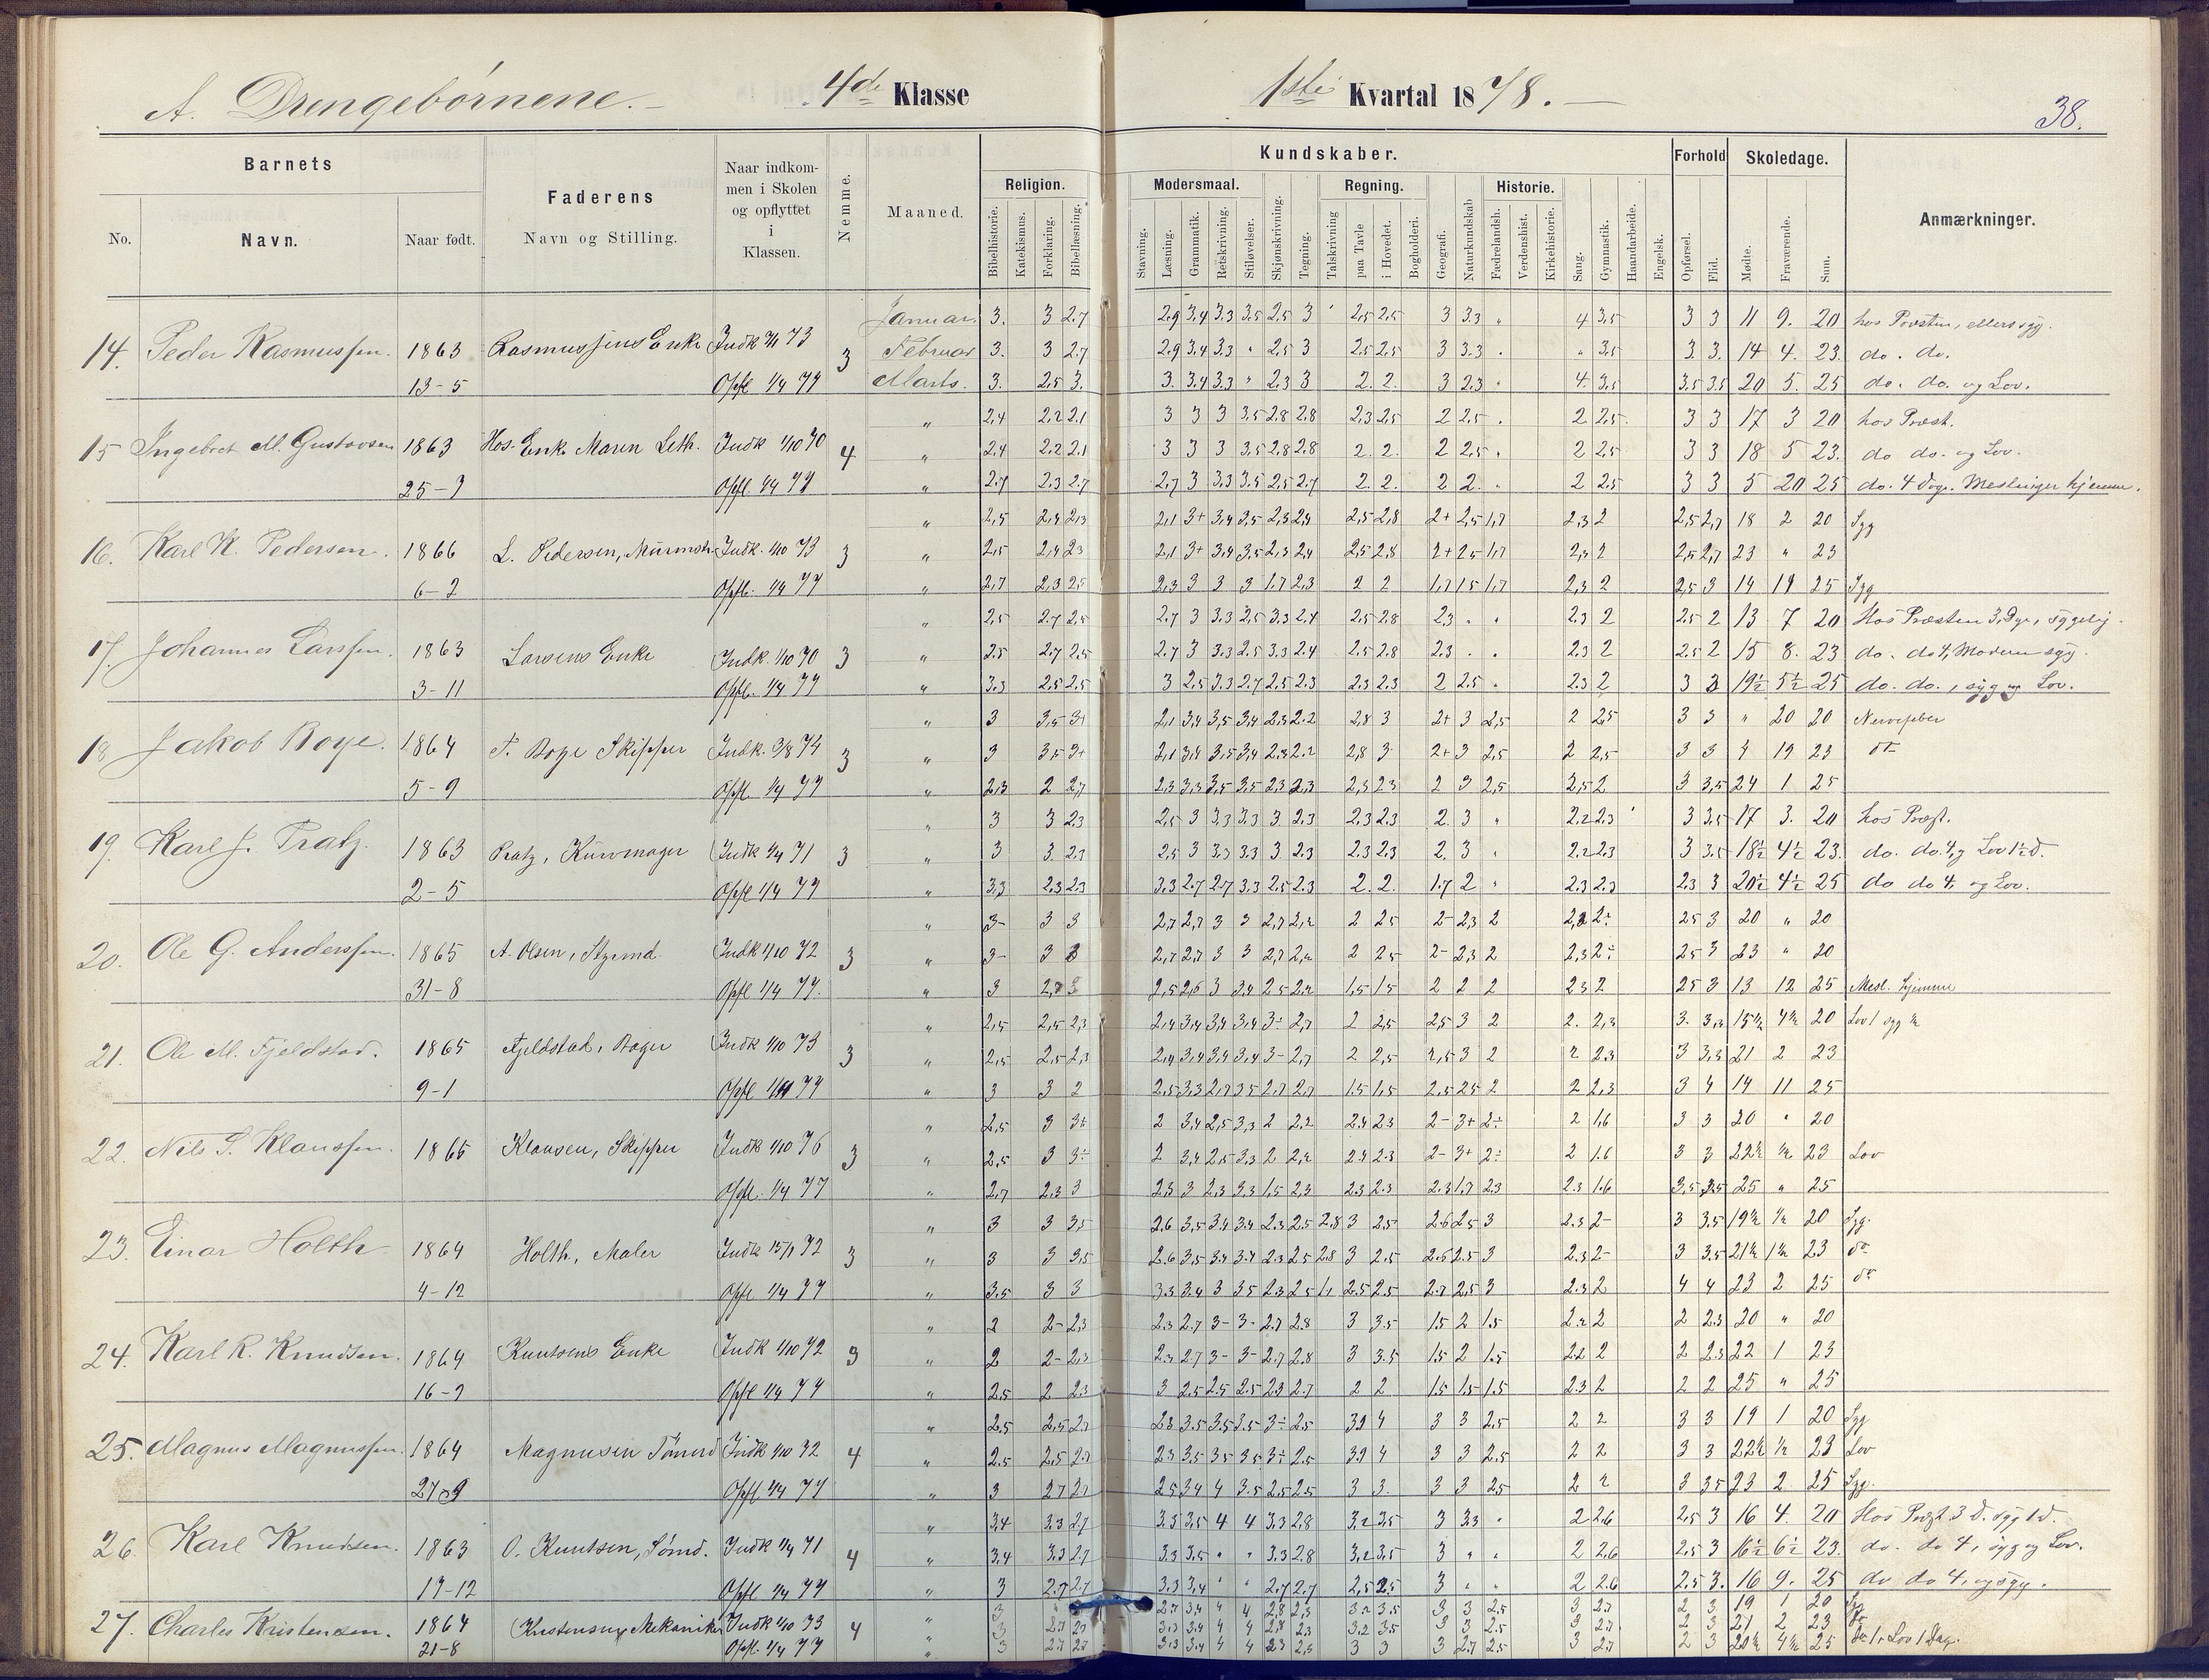 A. Drengebørnene. 4de Klasse 1ste Kvartal 1878. 38.
Barnets Faderens Naar indkommen i Skolen og opflyttet i Klassen. Nemme. Maaned. Kundskaber. Forhold Skoledage. Anmærkninger.
Religion. Modersmaal. Regning. Historie.
No. Navn. Naar født. Navn og Stilling.
Bibelhistorie. Katekismus. Forklaring. Bibellæsning. Stavning. Læsning. Grammatik. Retskrivning. Stiløvelser. Skjønskrivning. Tegning. Talskrivning paa Tavle i Hovedet. Bogholderi. Geografi. Naturkundskab Fædrelandsh. Verdenshist. Kirkehistorie. Sang. Gymnastik. Haandarbeide. Engelsk. Opførsel. Flid. Mødte. Fraværende. Sum.
Januar. 3. 3 2.7 2.9 3.4 3.3 3.5 2.5 3 2.5 2.5 3 3.3 " 4 3.5 3 3 11 9. 20 hos Præsten, ellers syg.
14. Peder Rasmussen. 1863 Rasmussens Enke Indk 73 3 Februar 3. 3 2.7 2.9 3.4 3.3 " 2.5 3 2.5 2.5 3 3.3 " " 3.5 3. 3. 14 4. 23. do. do.
13-5 Opfl 1/4 77 Marts. 3. 2.5 3. 3. 3.4 3.3 " 2.3 3 2. 2. 3 2.3 " 4. 3.5 3.5 3.5 20 5. 25 do. do. og Lov.
" 2.4 2.2 2.1 3 3 3 3.5 2.8 2.8 2.3 2.5 2 2.5 " 2 2.5 3 3 17 3 20 hos Præst.
15 Ingebret M. Gustavsen 1863 Hos Enk. Maren Leth. Indk 1/10 70 4 " 2.4 2.2 2.1 3 3 3 3.5 2.8 2.8 2. 2. 2 2.5 " 2 2.5 3 3 18 5 23. do do. og Lov.
25-9 Opfl 1/4 77 " 2.7 2.3 2.7 2.7 3 3.3 3.5 2.5 2.7 2. 2. 2 2. " 2 2.5 3 3 5 20 25 do. 4 Dage. Meslinger hjemme.
" 2,5 2,4 2,3 2,1 3+ 3,4 3,5 2,3 2,4 2,5 2,8 2+ 2,5 1,7 2,3 2 2,5 2,7 18 2 20 Syg
16. Karl K. Pedersen. 1866 L. Pedersen, Murmstr. Indk. 1/10 73 3 " 2,5 2,4 2,3 2,1 3+ 3,4 3,5 2,3 2,4 2,5 2,8 2+ 2,5 1,7 2,3 2 2,5 2,7 23 " 23
6-2 Opfl. 1/4 77 " 2,7 2,3 2,5 2,3 3 3 3 1,7 2,3 2 2 1,7 1,5 1,7 2,3 2 2,5 3 14 11 25 Syg
" 2,5 2.7 2.5 2.7 3 3.3 2.5 3.3 2.4 2.5 2.8 2.3 " " 2.3 2 2.5 2 13 7 20 Hos Præsten 3 Dge, sygelig.
17. Johannes Larssen. 1863 Larsens Enke Indk. 1/10 70 3 " 2.5 2.7 2.5 2.7 3 3.3 2.5 3.3 2.4 2.5 2.8 2.3 . . 2.3 2 2.5 2 15 8. 23 do. do 4, Moderen syg.
3-11 Opfl. 1/4 77 " 3.3 2.5 2.5 3 2.5 3.3 2.7 2.5 2.3 2.3 2.3 2 2.5 . 2.3 2 3 3 19½ 5½ 25 do. do., syg og Lov.
" 3 3,5 3+ 2,1 3,4 3,5 3,4 2,3 2.2 2,8 3 2+ 3 2,5 2 2,5 3 3 " 20 20 Nervefeber
18 Jakob Boye. 1864 T. Boye Skipper Indk. 3/8 74 3 " 3 3,5 3+ 2,1 3,4 3,5 3,4 2,3 2.2 2,8 3 2+ 3 2,5 2 2,5 3 3 4 19 23 do
5-9 Opfl 1/4 77 " 2,3 2 2,7 2,3 3,3 3,5 3,5 2,3 2,3 2,3 2,3 2 3 2,5 2,5 2 3 3,5 24 1 25
" 3 3 2.3 2,5 3 3.3 3.3 3. 2.3 2.3 2.3 2. 3 " 2.2 2.3 3 3.5 17 3. 20 hos Præst.
19. Karl J. Pratz. 1863 Pratz, Kurvmager Indk 1/4 71 3 " 3 3. 2.3 2.5 3 3.3 3.3 3. 2.3 2.3 2.3 2. 3 . 2.2 2.3 3 3.5 18½ 4½ 23. do. do. 4, og Lov 1½ d.
2-5 Opfl 1/4 77 " 3,3 2.3 2.3 3.3 2.7 2.7 3.3 2.5 2.3 2. 2. 1.7 2 " 2.3 2.3 2.3 3 20½ 4½ 25 do do 4. og Lov.
" 3- 3 3 2,7 2,7 3 3 2,7 2,2 2 2 5 2- 2,3 2 2,2 2÷ 2 5 3 20 " 20
20. Ole G. Anderssen. 1865 A. Olsen, Styrmd. Indk 1/10 72 3 " 3- 3 3 2,7 2,7 3 3 2,7 2,2 2 2 5 2- 2,3 2 2,3 2÷ 2 5 3 23 " 20
31-8 Opfl 1/4 77. " 3 2,5 2,6 3 3.4 2 5 2.2 1,5 1,5 2 2 2 2 3 2 2 5 3 13 12 25 Mesl. hjemme
" 2,5 2,5 2,3 2,4 3,4 3,4 3,4 3÷ 2,7 2 2,5 2,5 3 2 2. 2,3 3. 3,3 15½ 4½ 20 Lov 1 syg ½
21. Ole M. Fjeldstad. 1865 Fjeldstad, Bager Indk 1/10 73 3 " 2,5 2,5 2,3 2,4 3,4 3,4 3,4 3- 2,7 2 2,5 2,5 3 2 2 2.3 3 3,3 21 2 23
9-1 Opfl 77 " 3 3 2 2.5 3,3 2,7 3 5 2,7 2,7 1.5 1,5 2,5 2 5 2 2 2,3 3 4 14 11 25
" 2,5 3 3÷ 2 3,4 2,5 3,3 2 2.2 2.4 2.3 2- 3+ 2÷ 2 1,6 3 3 20 " 20
22. Nils S. Klaussen. 1865 Klausen, Skipper Indk 1/10 76 3 " 2,5 3 3÷ 2 3,4 2,5 3,3 2 2,2 2.4 2.3 2- 3+ 2÷ 2 1.6 3 3 22½ ½ 23 Lov
Opfl. 1/4 77 " 2,7 2,3 3 2,3 3 2,3 3.3 1,5 2.3 2.3 2.3 2.3 1,7 2.3 2.3 1.6 3,5 3.5 25 " 25
" 3 3 3,5 2.6 3,5 3.4 3.4 2.3 2.5 2.8 3 2.5 2.6 2.5 3 2.3 2- 3 3.5 19½ ½ 20 Syg.
23. Einar Holth 1864 Holth, Maler Indk 15/1 72 3 " 3 3 3,5 2.6 3,5 3.4 3.4 2.3 2 5 2.8 3 2.5 2.6 2.5 3 2.3 2- 3 3.5 21½ 1½ 23 do
4-12 Opfl 1/4 77 " 3.5 3 3 3.3 3.4 3 3 5 2.3 2 5 2.5 2.5 2.7 2,5 3 2.3 2 4 4 23 2 25 do
" 2 2- 2,3 2.3 2.7 3- 3- 2.7 2.8 3 3.5 1.5 2 1.5 2.2 2 2 2.3 20 " 20
24. Karl R. Knudsen. 1864 Knutsens Enke Indk 1/10 72 3 " 2 2- 2,3 2.3 2.7 3- 3- 2.7 2.8 3 3.5 1.5 2 1.5 2.2 2 2 2.3 22 1 23
16-9 Opfl 1/4 77 " 2.5 2 2.3 3 2.5 2.5 2.5 2.3 2.7 2 2 1.5 1.5 1.5 2.3 2 2 2 25 " 25
" 2.5 2,5 2.7 2.3 3.5 3.5 3.5 3÷ 2.5 3.4 4 3 3 2.5 2 2 3 3 19 1 20 Syg
25. Magnus Magnussen. 1864 Magnusen Tømrd Indk 1/10 72 4 " 2.5 2,5 2.7 2.3 3.5 3 5 3 5 3÷ 2.5 3.4 4 3 3 2.5 2 2 3 3 22½ ½ 23 Lov
27-9 Opfl 1/4 77 " 3 2 7 2 7 2 5 3 4 4 3.5 2.5 2.5 3 3. 3 3 2.5 2 2 3 3 5 23 2 25 Syg.
" 3,4 3.3 2.7 3.3 3,5 4 4 3.3 2.8 3.2 3.5 3 3.3 " 2 2.6 2.5 3 16 4 20 Hos Præst 3 d. syg 1 d.
26. Karl Knudsen. 1863 O. Knutsen, Sømd. Indk 1/4 71 4 " 3.4 3.3 2.7 3.3 3.5 " " 3.3 2.8 3,2 3.5 3 " " 2 2.6 2.5 3 16½ 6½ 23. do. do 4, syg og Lov.
17-12 Opfl 1/4 77 " 3 2.7 2.7 3.3 3,4 " " 2.7 2.7 2,5 2.5 3 " " 2 2.6 2.5 3. 16 9. 25 do do 4, og syg.
" 3 2.7 3.4 4 4 2,8 2,3 3.2 3.5 3 3 2.5 3 2.7 2 3 19 1 20 Syg
27. Charles Kristensen. 1864 Kristensen Mekaniker Indk 1/10 73 4 " 3 2.7 2.7 3.3 3.4 4 4 2,8 2,3 3.2 3.5 3 3 2.5 3 2.7 2 3 21 2 23 do
21-8 Opfl. 1/4 77 " 3 2.7 2.7 3.3 3.4 4 4 2.3 2.3 3 3 3 2.7 2.5 3 2.7 2 3 20½ 4½ 25 do 1, Lov 1 Dag.